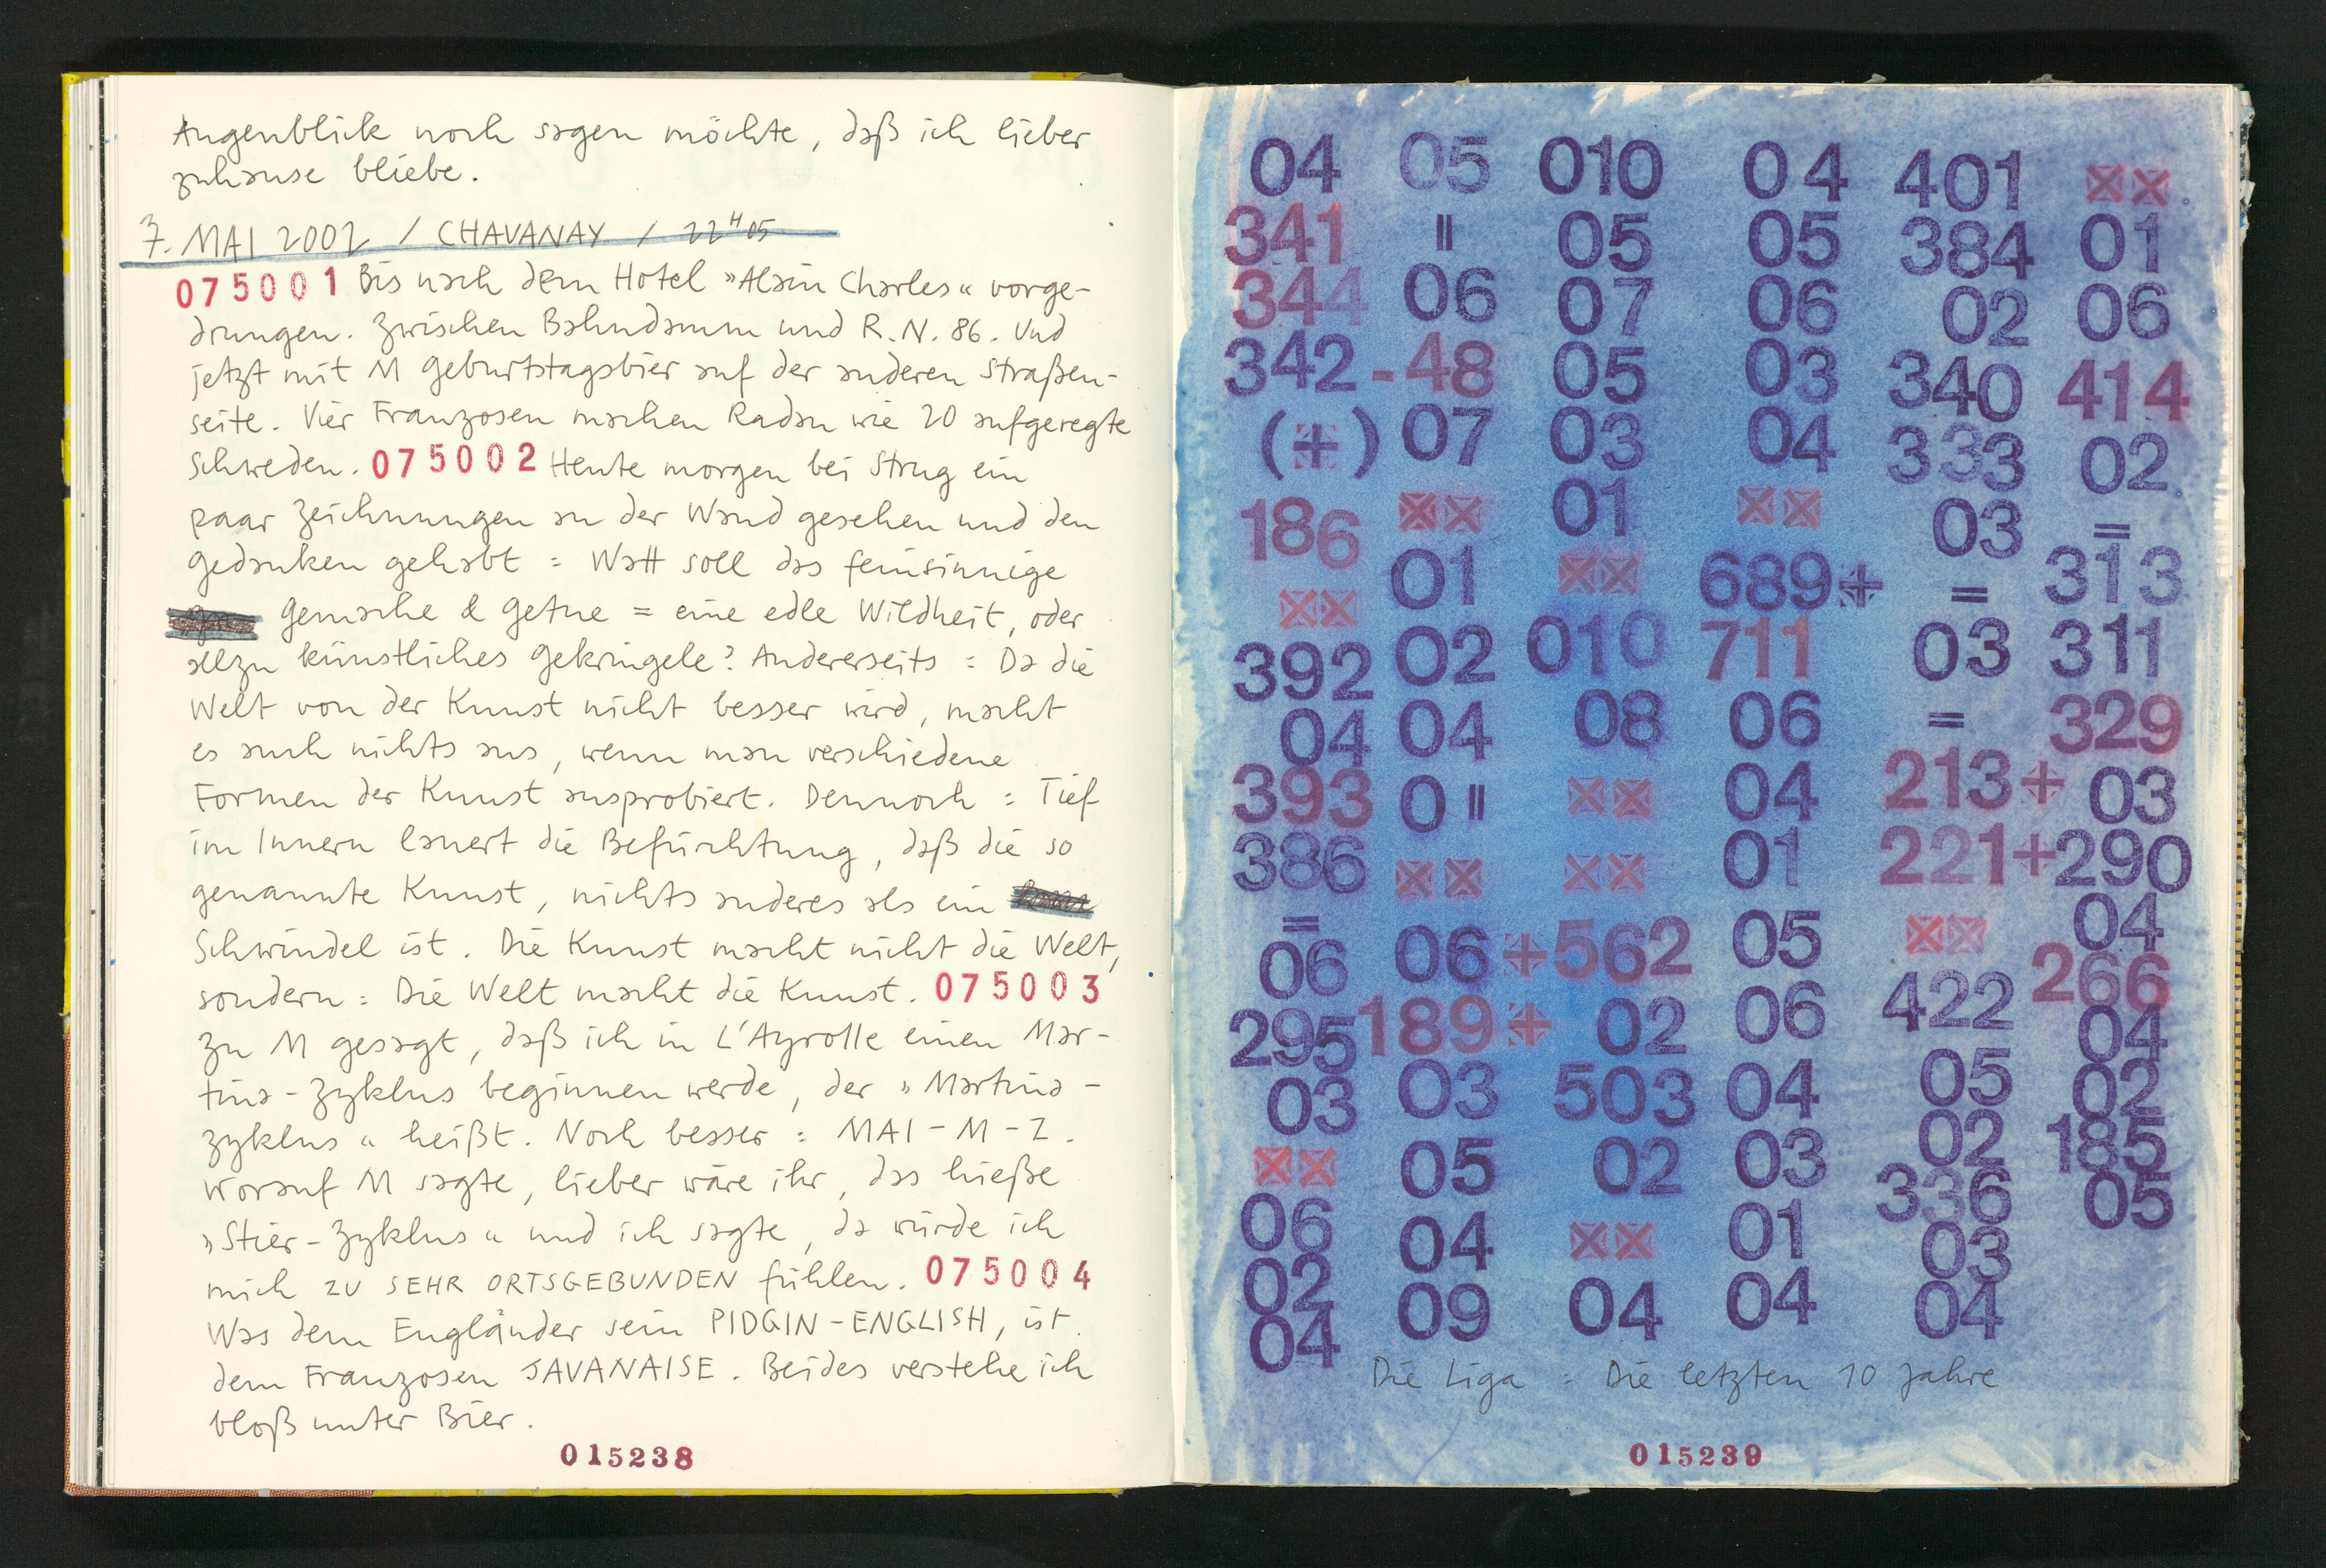 Augenblick noch sagen möchte, daß ich lieber
zuhause bliebe.
7. MAI 2002 / CHAVANAY / 22H05
075001 Bis nach dem Hotel »Alain Charles« vorge-
drungen. Zwischen Bahndamm und R.N. 86. Und
jetzt mit M Geburtstagsbier auf der anderen Straßen-
seite. Vier Franzosen machen Radau wie 20 aufgeregte
Schweden. 075002 Heute morgen bei Strug ein
paar Zeichnungen an der Wand gesehen und den
Gedanken gehabt = Watt soll das feinsinnige
Gemache & Getue = eine edle Wildheit, oder
allzu künstliches Gekringele? Andererseits = Da die
Welt von der Kunst nicht besser wird, macht
es auch nichts aus, wenn man verschiedene
Formen der Kunst ausprobiert. Dennoch = Tief
im Innern lauert die Befürchtung, daß die so
genannte Kunst, nichts anderes als ein
Schwindel ist. Die Kunst macht nicht die Welt,
sondern = Die Welt macht die Kunst. 075003
Zu M gesagt, daß ich in L'Ayrolle einen Mar-
tina-Zyklus beginnen werde, der »Martina-
zyklus« heißt. Noch besser = MAI-M-Z.
Worauf M sagte, lieber wäre ihr, das hieße
»Stier-Zyklus« und ich sagte, da würde ich
mich ZU SEHR ORTSGEBUNDEN fühlen. 075004
Was dem Engländer sein PIDGIN-ENGLISH, ist
dem Franzosen JAVANAISE. Beides verstehe ich
bloß unter Bier.
015238
04 05 010 04 401 ××
341 || 05 05 384 01
344 06 07 06 02 06
342 - 48 05 03 340 414
(+) 07 03 04 333 02
186 ×× 01 ×× 03 =
×× 01 ×× 689+ = 313
392 02 010 711 03 311
04 04 08 06 = 329
393 0 || ×× 04 213+ 03
386 ×× ×× 01 221+ 290
= ×× 04
06 06 +562 05 266
295 189+ 02 06 422 04
03 03 503 04 05 02
×× 05 02 03 02 185
06 04 ×× 01 336 05
02 03
04 09 04 04 04
Die Liga = Die letzten 10 Jahre
015239